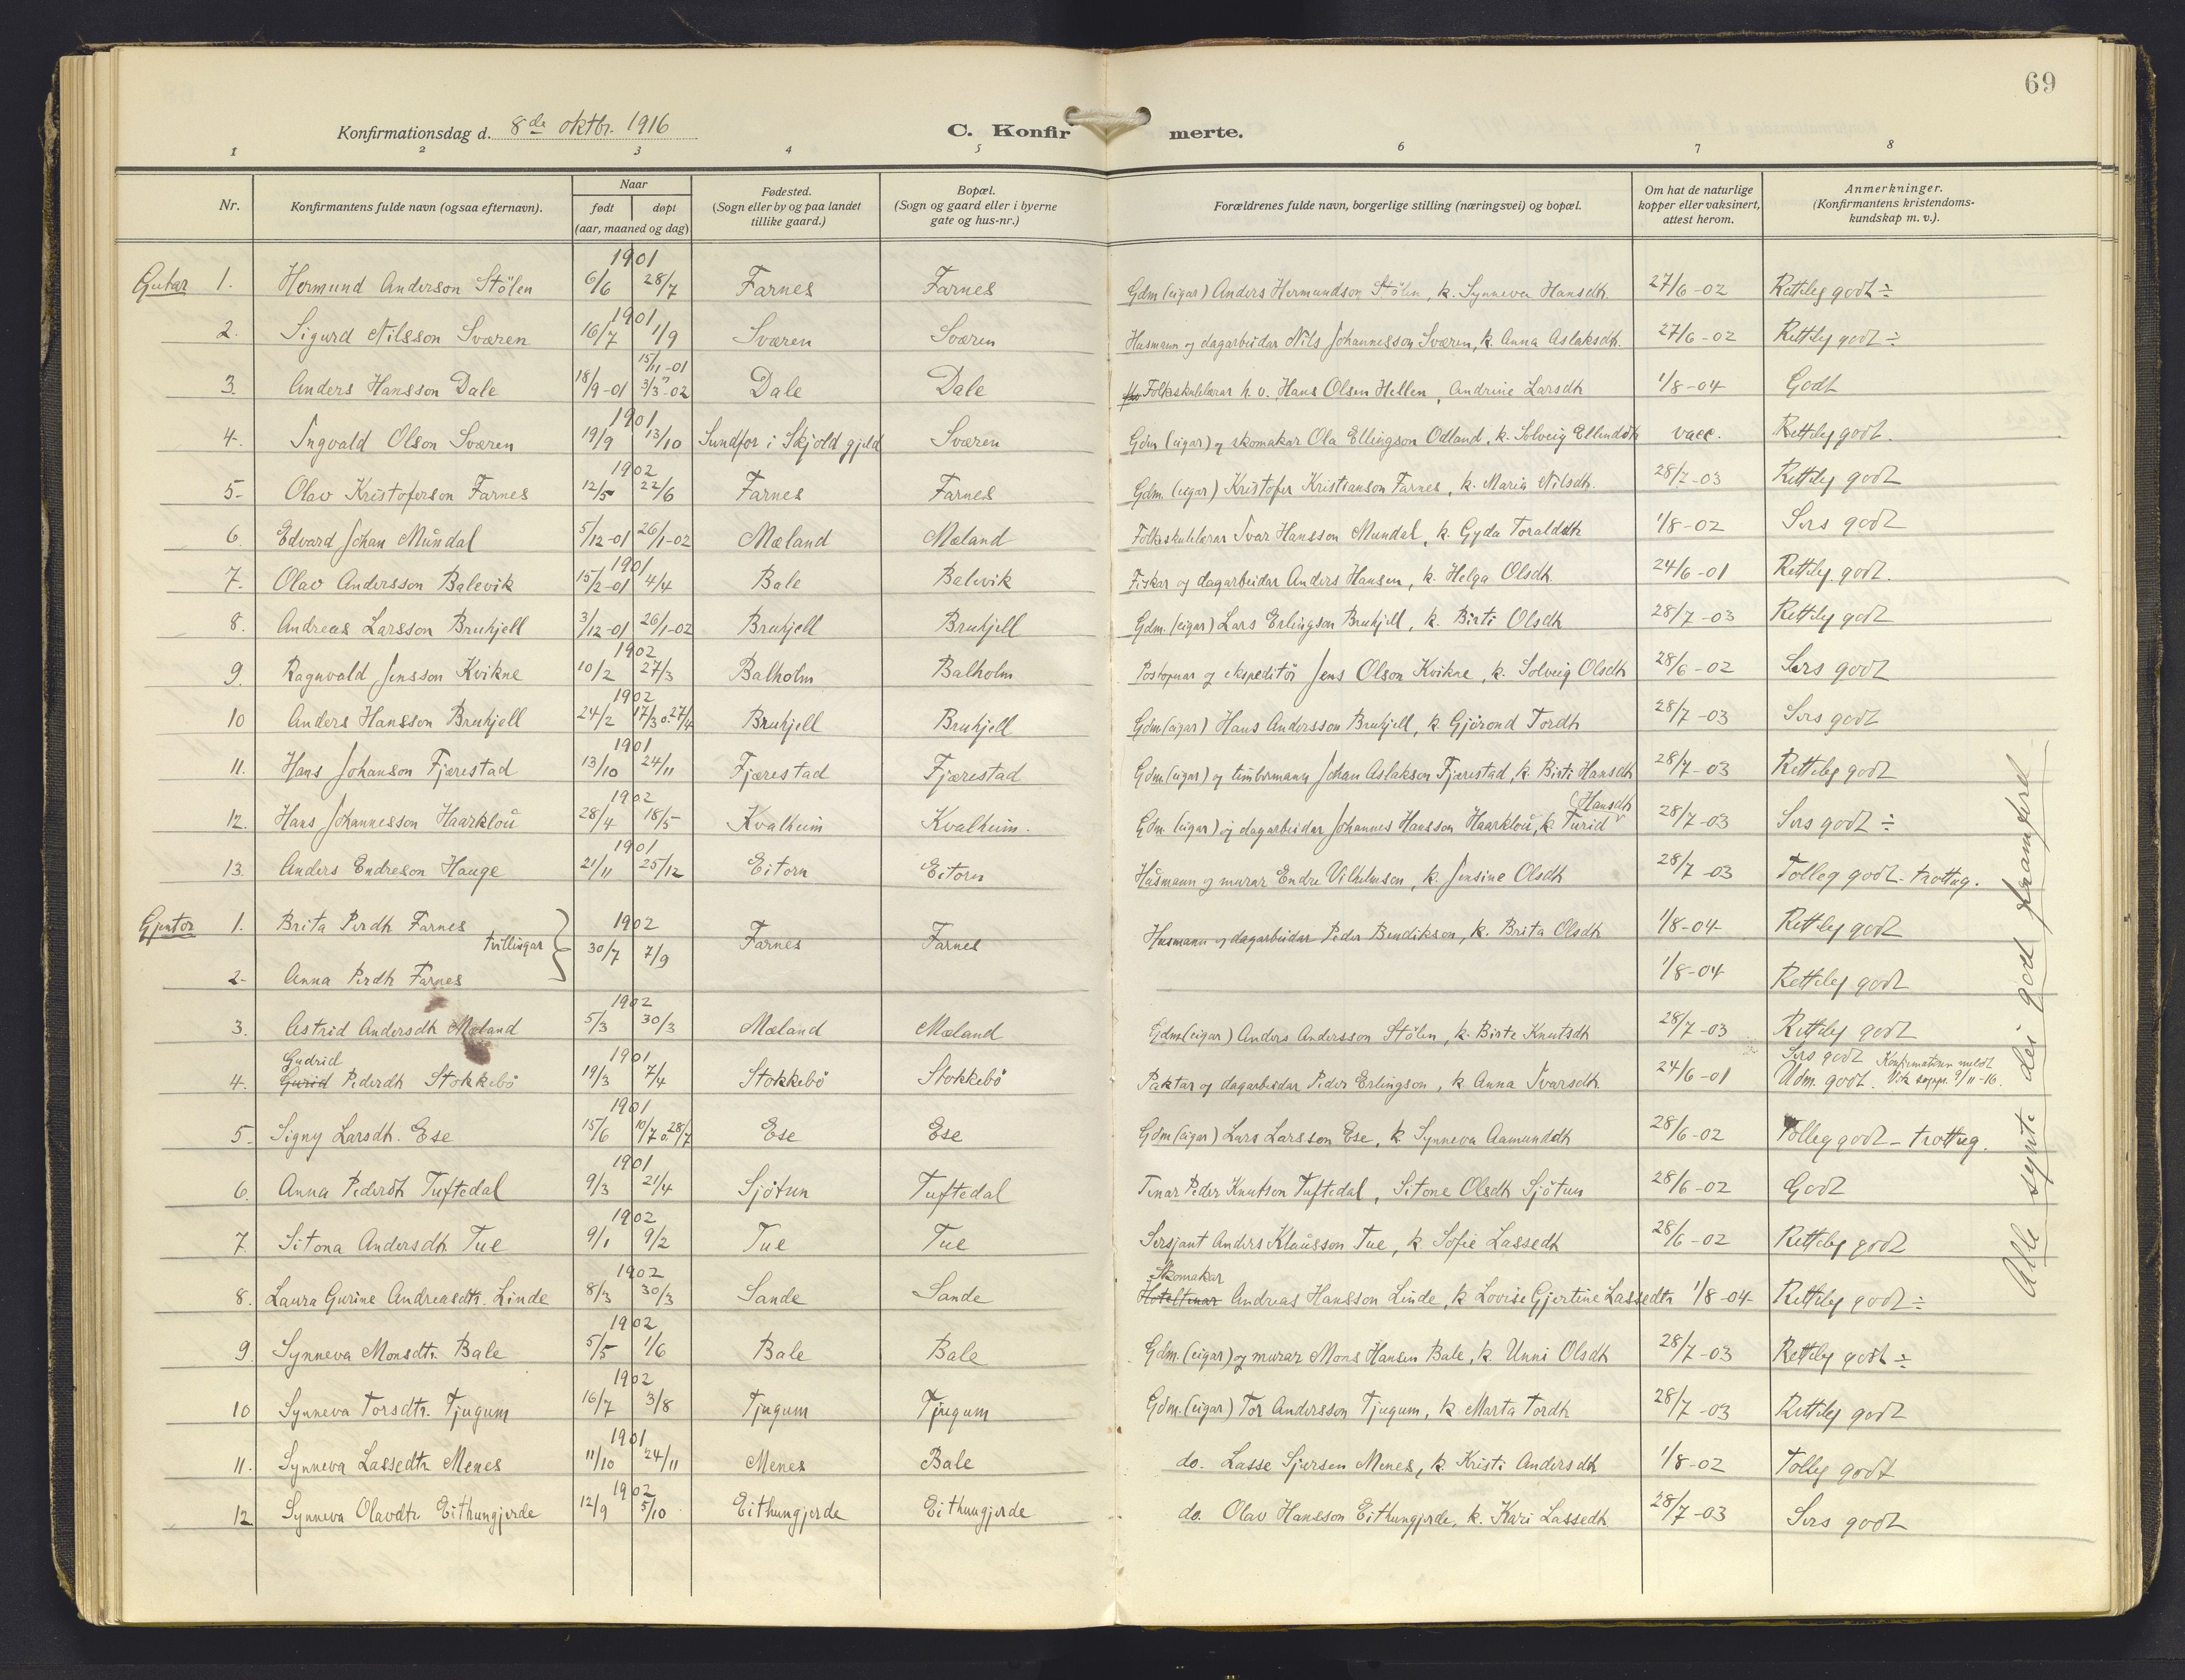 69
Konfirmationsdag d. 8de oktbr. 1916 C. Konfirmerte.
1 2 3 4 5 6 7 8
Nr. Konfirmantens fulde navn (ogsaa efternavn). Naar født døpt (aar, maaned og dag) Fødested. (Sogn eller by og paa landet tillike gaard.) Bopæl. (Sogn og gaard eller i byerne gate og hus-nr.) Forældrenes fulde navn, borgerlige stilling (næringsvei) og bopæl. Om hat de naturlige kopper eller vaksinert, attest herom. Anmerkninger. (Konfirmantens kristendomskundskap m. v.).
1901
Gutar 1. Hermund Anderson Stölen 6/6 28/7 Farnes Farnes Gdm (eigar) Anders Hermundson Stölen, k. Synneva Hansdh. 27/6-02 Retteleg godt ÷
1901
2. Sigurd Nilsson Sværen 16/7 1/9 Sværen Sværen Husmann og dagarbeidar Nils Johannesson Sværen, k. Anna Aslaksdh. 27/6-02 Retteleg godt ÷
15/11-01
3. Anders Hansson Dale 18/9-01 3/3?-02 Dale Dale Folkeskulelærar h. v. Hans Olsen Hellen, Andrine Larsdh 1/8-04 Godt
1901
4. Ingvald Olson Sværen 19/9 13/10 Sundfør i Skjold gjeld Sværen Gdm (eigar) og skomakar Ola Ellingson Odland, k. Solveig Ellendsdh vacc. Retteleg godt.
1902
5- Olav Kristoferson Farnes 12/5 22/6 Farnes Farnes Gdm. (eigar) Kristofer Kristianson Farnes, k. Maria Nilsdh. 28/7-03 Retteleg godt
6. Edvard Johan Mundal 5/12-01 26/1-02 Mæland Mæland Folkeskulelærar Ivar Hansson Mundal, k. Gyda Toraldsdh 1/8-02 Sers godt
1901
7- Olav Andersson Balevik 15/2-01 4/4 Bale Balevik Fiskar og dagarbeidar Anders Hansen, k. Helga Olsdh. 24/6-01 Retteleg godt.
8. Andreas Larsson Bruhjell 3/12-01 26/1-02 Bruhjell Bruhjell Gdm. (eigar) Lars Erlingson Bruhjell, k. Birti Olsdh 28/7-03 Retteleg godt
1902
9. Ragnvald Jensson Kvikne 10/2 27/3 Balholm Balholm Postopnar og ekspeditör Jens Olson Kvikne, k. Solveig Olsdh 28/6-02 Sers godt
1902
10 Anders Hansson Bruhjell 24/2 17/3 o. 27/4 Bruhjell Bruhjell Gdm (eigar) Hans Andersson Bruhjell, k. Gjörond Tordh 28/7-03 Sers godt
1901
11. Hans Johanson Fjærestad 13/10 24/11 Fjærestad Fjærestad Gdm (eigar) og timbermann Johan Aslakson Fjærestad, k. Birti Hansdh 28/7-03 Retteleg godt
1902 Hansdh
12. Hans Johannesson Haarklou 28/4 18/5 Kvalheim Kvalheim. Gdm (eigar) og dagarbeidar Johannes Hansson Haarklou, k. Turid 28/7-03 Sers godt ÷
1901
13. Anders Endreson Hauge 21/11 25/12 Eitorn Eitorn Husmann og murar Endre Vilhelmsen, k. Jensine Olsdh 28/7-03 Tolleg godt - trottug.
Gjentor 1. Brita Perdh Farnes 1902 Farnes Farnes Husmann og dagarbeidar Peder Bendikson, k. Brita Olsdh 1/8-04 Retteleg godt
tvillingar 30/7 7/9
2- Anna Perdh Farnes 1/8-04 Retteleg godt
1902
3. Astrid Andersdh Mæland 5/3 30/3 Mæland Mæland Gdm (eigar) Anders Andersson Stölen, k. Birte Knutsdh 28/7-03 Retteleg godt
Gudrid 1901 Sers godt Konfirmationen meldt
4. Gurid Pederdh Stokkebö 19/3 7/4 Stokkebö Stokkebö Paktar og dagarbeidar Peder Erlingson, k. Anna Ivarsdh 24/6-01 Udm. godt. Vik sogpr. 9/11-16.
1901
5. Signy Larsdh. Ese 15/6 10/7 o. 28/7 Ese Ese Gdm (eigar) Lars Larsson Ese, k. Synneva Aamundsdh 28/6-02 Tolleg godt - trottug.
1901
6. Anna Pedersdh Tuftedal 9/3 21/4 Sjötun Tuftedal Tenar Peder Knutson Tuftedal, Sitone Olsdh Sjötun 28/6-02 Godt
1902
7. Sitona Andersdh Tue 9/1 9/2 Tue Tue Sersjant Anders Klausson Tue, k. Sofie Lassedh 28/6-02 Retteleg godt
1902 Skomakar
8. Laura Gurine Andreasdtr. Linde 8/3 30/3 Sande Sande Hoteltenar Andreas Hansson Linde, k Lovise Gjertine Lassedtr 1/8-04- Retteleg godt ÷
1902
9. Synneva Monsdtr. Bale 5/5 1/6 Bale Bale Gdm. (eigar) og murar Mons Hansen Bale, k. Unni Olsdh 28/7-03 Retteleg godt ÷
1902
10 Synneva Torsdtr. Tjugum 16/7 3/8 Tjugum Tjugum Gdm. (eigar) Tor Andersson Tjugum, k Marta Tordh 28/7-03 Retteleg godt
1901
11. Synneva Lassedtr Menes 11/10 24/11 Menes Bale do. Lasse Sjursen Menes, k. Kristi Andersdh 1/8-02 Tolleg godt
1902
12 Synneva Olavdtr. Eithungjerde 12/9 5/10 Eithungjerde Eithungjerde do. Olav Hansson Eithungjerde, k. Kari Lassedh 28/7-03 Sers godt
Alle synte dei god framferd